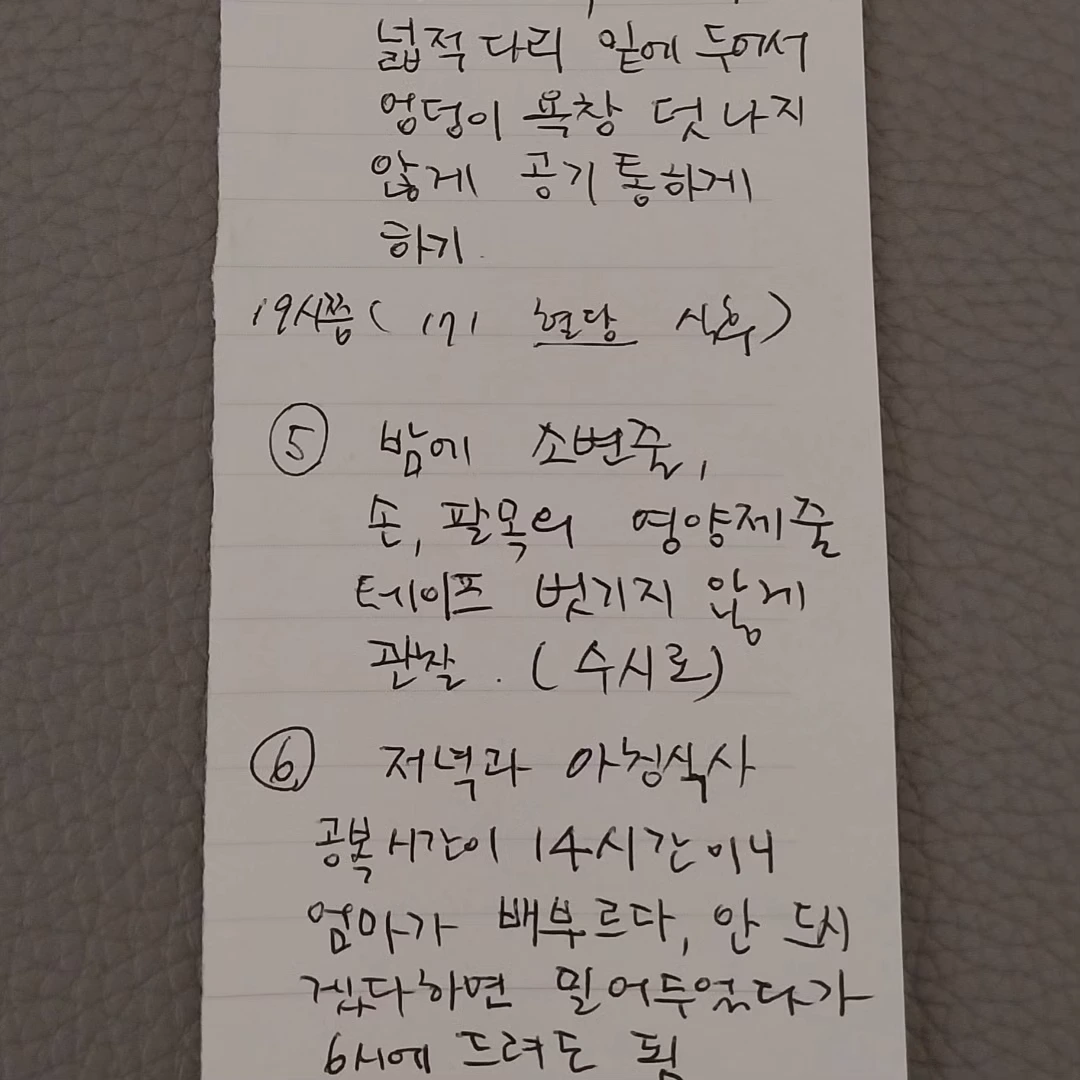 넓적다리 밑에 두어서
엉덩이 욕창 덧나지
않게 공기 통하게
하기.
19시쯤 ( 171 혈당 식후)
⑤ 밤에 소변줄,
손, 팔목의 영양제 줄
테이프 벗기지 않게
관찰. (수시로)
⑥ 저녁과 아침식사
공복시간이 14시간이니
엄마가 배부르다, 안 드시
겠다하면 밀어두었다가
6시에 드려도 됨